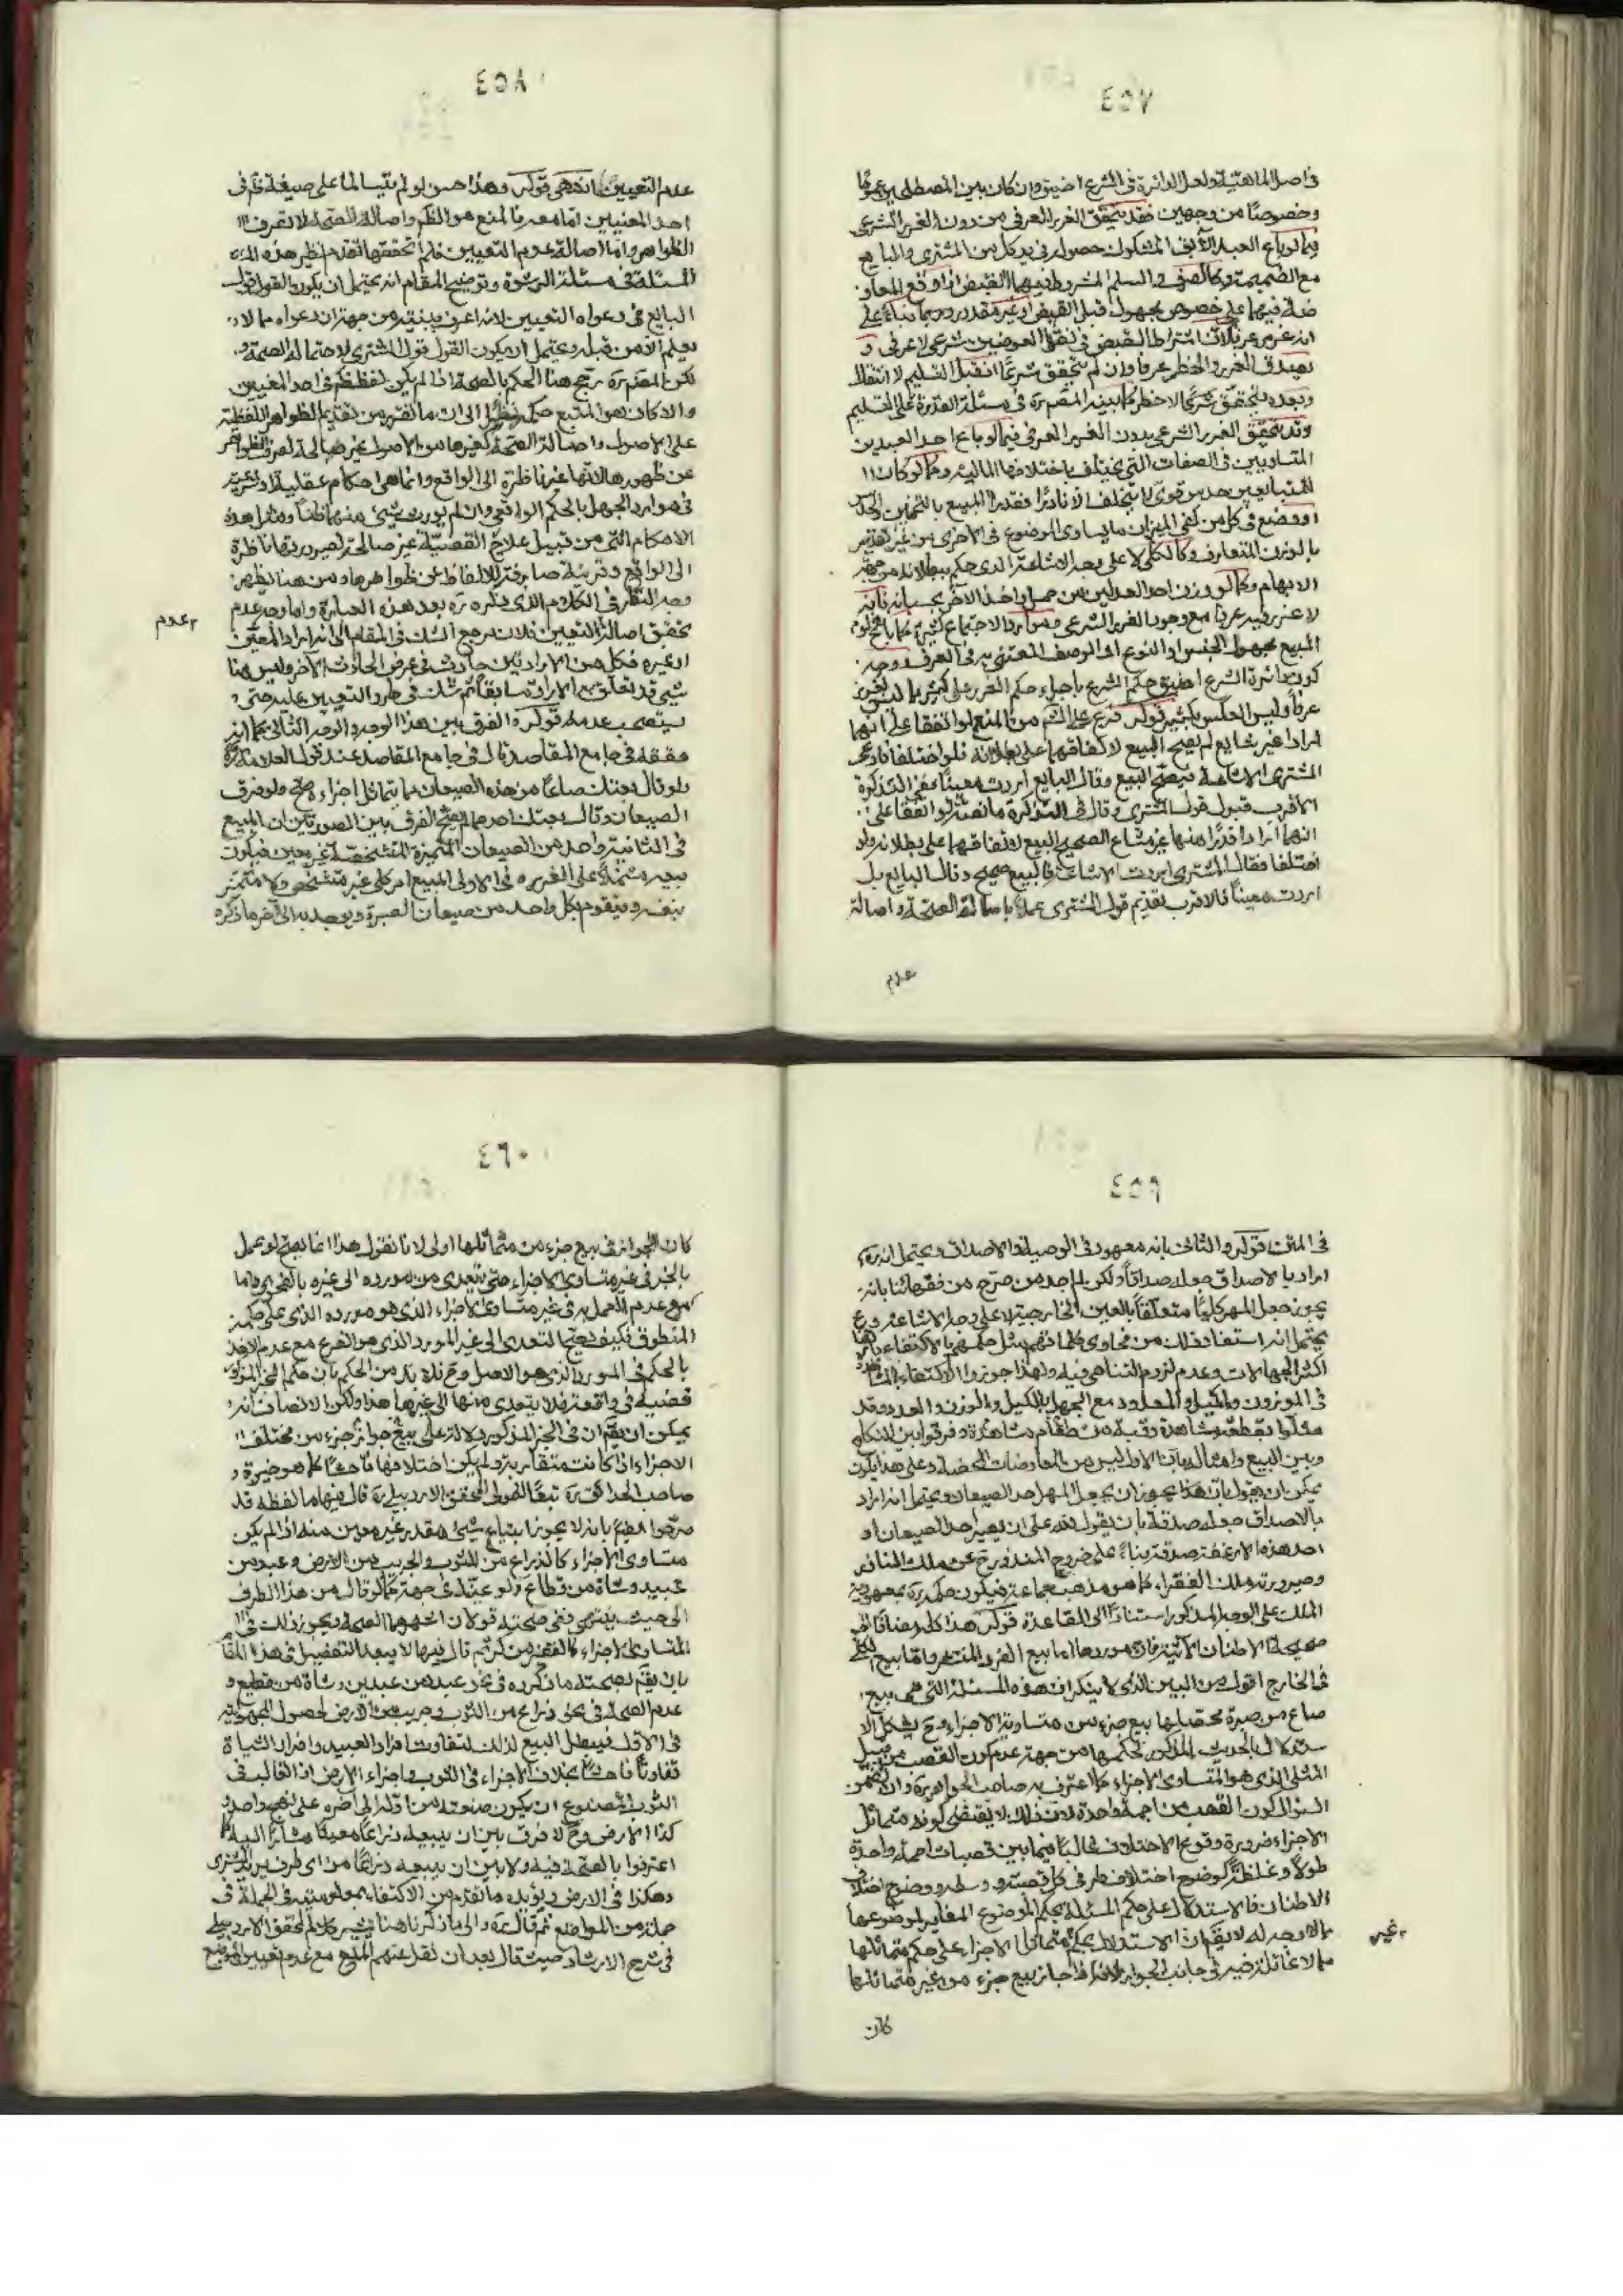 ٤٥٧
في اصل الماهية ولعل الدائرة في الشرع اضيق وان كان بين المصطلحين عموما
وخصوصا من وجهين فقد يتحقق الغرر العرفي من دون الغرر الشرعي
كما لو باع العبد الآبق المشكوك حصوله في يد كل من المشتري والبايع
مع الضميمة وكالصرف والسلم المشروط فيهما القبض اذا وقع المعاو
ضة فيهما على خصوص مجهول قبل القبض او غير مقدور بناء على
انه غرر عرفا لان اشتراط القبض في نقل العوضين شرعي لا عرفي و
يصدق الغرر والخطر عرفا وان لم يتحقق شرعا اذ قبل التسليم لا انتقال
وبعده لا يتحقق شرعا لا خطر كما بينه المصره في مسئلة القدرة على التسليم
وقد يتحقق الغرر الشرعي بدون الغرر العرفي فيما لو باع احد العبدين
المتساويين في الصفات التي يختلف باختلافها المالية وكما لو كان
للمتبايعين حدس قوي لا يتخلف الا نادرا فقدرا المبيع بالتخمين والحدس
او وضع في كل من كفتي الميزان ما يساوي الموضوع في الاخرى من غير تقدير
بالوزن المتعارف وكالكلي لا على وجه الاشاعة الذي حكم ببطلانه من جهة
الابهام وكما لو وزن احد العدلين من حمل واخذ الآخر بحسابه فانه
لا غرر فيه عرفا مع وجود الغرر الشرعي وموارد الاجتماع كثيرة كما
المبيع مجهول الجنس او النوع او الوصف المعتنى به في العرف ووجه
كون دائرة الشرع اضيق حكم الشرع باجراء حكم الغرر على كثير مما ليس بغرر
عرفا وليس العكس بكثير قوله فرع على المنع لو اتفقا على انهما
ارادا غير شايع لم يصح البيع لاتفاقهما على بطلانه فلو اختلفا فادعى
المشتري الاشاعة فيصح البيع وقال البايع اردت معينا ففي التذكرة
الاقرب قبول قول المشتري وقال في التذكرة ما نصه لو اتفقا على
انهما ارادا قدرا منها غير مشاع لم يصح البيع لاتفاقهما على بطلانه ولو
اختلفا فقال المشتري اردت الاشاعة فالبيع صحيح وقال البايع بل
اردت معينا فالاقرب تقديم قول المشتري عملا باصالة الصحة واصالة
عدم
٤٥٨
عدم التعيين انتهى قوله وهذا حسن لو لم يتسالما على صيغة ظاهرة في
احد المعنيين اما معه فالمتبع هو الظاهر واصالة الصحة لا تصرف
الظواهر واما اصالة عدم التعيين فلم اتحققها تقدم نظير هذه
المسئلة في مسئلة الرشوة وتوضيح المقام انه يحتمل ان يكون القول قول
البايع في دعواه التعيين لانه اعرف بنيته من جهة ان دعواه مما لا
يعلم الا من قبله ويحتمل ان يكون القول قول المشتري لاحتماله الصحة و
لكن المصره رجح هنا الحكم بالصحة اذا لم يكن لفظ ظاهر في احد المعنيين
والا كان هو المتبع حكمه نظرا الى ان ما تقرر من تقديم الظواهر اللفظية
على الاصول واصالة الصحة كغيرها من الاصول غير صالحة لصرف الظواهر
عن ظهورها لانها غير ناظرة الى الواقع وانما هي احكام عقلية او شرعية
في موارد الجهل بالحكم الواقعي وان لم يورث شيئ منهما ظنا ومثل هذه
الاحكام التي من قبيل علاج القضية غير صالحة لصيرورتها ناظرة
الى الواقع وقرينة صارفة للالفاظ عن ظواهرها ومن هنا يظهر
وجه النظر في الكلام الذي ذكره ره بعد هذه العبارة واما وجه عدم
عدم
تحقق اصالة التعيين فلان مرجع الشك في المقام الى انه اراد المعين
او غيره فكل من الارادتين حادث في عرض الحادث الآخر وليس هنا
شيئ قد تعلق به الارادة سابقا ثم شك في طرو التعيين عليه حتى
يستصحب عدمه قوله والفرق بين هذا الوجه والوجه الثاني كما
حققه في جامع المقاصد قال في جامع المقاصد عند قول العلامة ره
ولو قال بعتك صاعا من هذه الصيعان مما يتماثل اجزاءه صح ولو فرق
الصيعان وقال بعتك احدها لم يصح الفرق بين الصورتين ان المبيع
في الثانية واحد من الصيعان المتميزة المتشخصة غير معين فيكون
بيعه مشتملا على الغرر وفي الاولى المبيع امر كلي غير متشخص ولا متميز
بنفسه ويتقوم بكل واحد من صيعان الصبرة ويوجد به الى آخر ما ذكره
٤٥٩
في المتن قوله والثاني بانه معهود في الوصية والاصداق ويحتمل انه ره
اراد بالاصداق جعله صداقا ولكن لم اجد من صرح من فقهائنا بانه
يجوز جعل المهر كليا متعلقا بالعين الخارجية لا على وجه الاشاعة وع
يحتمل انه استفاد ذلك من فحاوى كلماتهم مثل حكمهم بالاكتفاء
اكثر الجهالات وعدم لزوم التناهي فيه ولهذا جوزوا الاكتفاء بالمشاهدة
في الموزون والمكيل والمعدود مع الجهل بالكيل والوزن والعدد وقد
مثلوا بقطعة مشاهدة وقبة من طعام مشاهدة وفرقوا بين النكاح
وبين البيع وامثاله بان الاول ليس من المعاوضات المحضة وعلى هذا يكون
يمكن ان يقول بان هذا يجوز ان يجعل المهر احد الصيعان ويحتمل انه اراد
بالاصداق جعله صدقة بان يقول لله علي ان يصير احد الصيعان او
احد هذه الارغفة صدقة بناء على خروج المنذور عن ملك الناذر
وصيرورته ملك الفقراء كما هو مذهب جماعة فيكون حكمه ره بمعهودية
الملك على الوجه المذكور استنادا الى القاعدة قوله هذا كله مضافا الى
صحيحة الاطنان الآتية فان موردها اما بيع الفرد المنتشر واما بيع الكلي
في الخارج اقول من البين الذي لا ينكر ان هذه المسئلة التي هي بيع
صاع من صبرة محصلها بيع جزء من متساوية الاجزاء وح يشكل الا
ستدلال بالحديث المذكور لحكمها من جهة عدم كون القصب من قبيل
المثلي الذي هو المتساوي الاجزاء كما اعترف به صاحب الجواهر ره وان تضمن
السؤال كون القصب من اجمة واحدة لان ذلك لا يقتضي كونه متماثل
الاجزاء ضرورة وقوع الاختلاف غالبا فيما بين قصبات اجمة واحدة
طولا وغلظة كوضوح اختلاف طرفي كل قصبة ووسطه ووضوح اختلاف
الاطنان فالاستدلال على حكم المسئلة بحكم الموضوع المغاير لموضوعها
مما لا وجه له لا يقم ان الاستدلال بحكم متماثل الاجزاء على حكم متماثلها
غير
مما لا غائلة فيه في جانب الجواز لانه اذا جاز بيع جزء من غير متماثلها
كان
٤٦٠
كان الجواز في بيع جزء من متماثلها اولى لانا نقول هذا انما يصح لو عمل
بالخبر في غير متساوي الاجزاء حتى يتعدى من مورده الى غيره بالفحوى واما
مع عدم العمل به في غير متساوي الاجزاء الذي هو مورده الذي على حكمه
المنطوق فكيف يصح التعدي الى غير المورد الذي هو الفرع مع عدم الاخذ
بالحكم في المورد الذي هو الاصل وح فلا بد من الحكم بان حكم الخبر المزبور
قضية في واقعة فلا يتعدى منها الى غيرها هذا ولكن الانصاف انه
يمكن ان يقم ان في الخبر المذكور دلالة على جواز بيع جزء من مختلف
الاجزاء اذا كانت متقاربة ولم يكن اختلافها فاحشا كما هو خيرة
صاحب الحدائق ره تبعا للمولى المحقق الاردبيلي ره قال فيها ما لفظه قد
صرحوا ايضا بانه لا يجوز ابتياع شيئ مقدر غير معين منه اذا لم يكن
متساوي الاجزاء كالذراع من الثوب والجريب من الارض وعبد من
عبيد وشاة من قطاع ولو عينه في جهة كما لو قال من هذا الطرف
الى حيث ينتهي ففي صحته قولان اظهرهما الصحة ويجوز ذلك في
المتساوي الاجزاء كالقفيز من كر ثم قال فيها لا يبعد التفصيل في هذا المقام
بان يقم بصحة ما ذكروه في نحو عبد من عبدين وشاة من قطيع و
عدم الصحة في نحو ذراع من الثوب وجريب من الارض لحصول المجهولية
في الاول فيبطل البيع لذلك لتفاوت افراد العبيد وافراد الشياة
تفاوتا فاحشا بخلاف الاجزاء في الثوب واجزاء الارض اذ الغالب في
الثوب المصنوع ان يكون صنعته من اوله الى آخره على نهج واحد و
كذا الارض وح لا فرق بين ان يبيعه ذراعا معينا مشارا اليه كما
اعترفوا بالصحة فيه ولا بين ان يبيعه ذراعا من اي طرف يريد المشتري
وهكذا في الارض ويؤيده ما تقدم من الاكتفاء بمعلوميته في الجملة في
جملة من المواضع ثم قال ره والى ما ذكرنا هنا يشير كلام المحقق الاردبيلي
في شرح الارشاد حيث قال بعد ان نقل عنهم المنع مع عدم تعيين الموضع